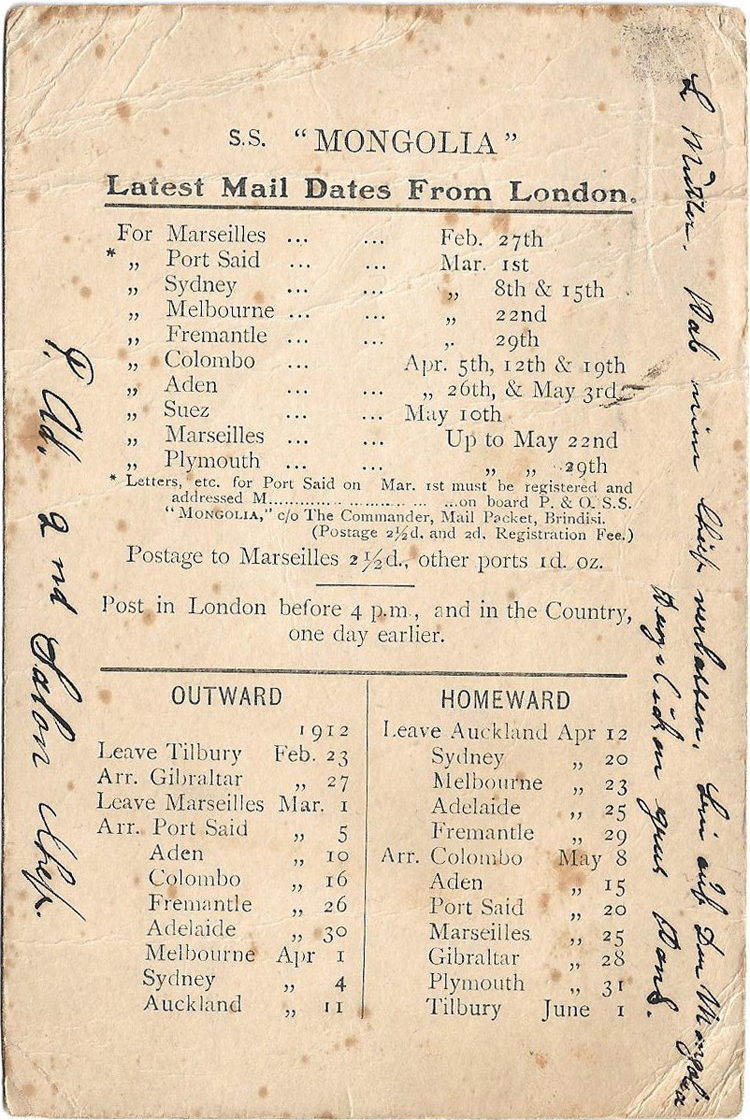 S.S. "MONGOLIA"
Latest Mail Dates From London.
For Marseilles ... ... Feb. 27th
* „ Port Said ... ... Mar. 1st
„ Sydney ... ... „ 8th & 15th
„ Melbourne ... ... „ 22nd
„ Fremantle ... ... „ 29th
„ Colombo ... Apr. 5th, 12th & 19th
„ Aden ... ... „ 26th, & May 3rd
„ Suez ... ... May 10th
„ Marseilles ... ... Up to May 22nd
„ Plymouth ... ... „ „ 29th
* Letters, etc. for Port Said on Mar. 1st must be registered and
addressed M..............................on board P. & O. S.S.
"MONGOLIA," c/o The Commander, Mail Packet, Brindisi.
(Postage 2½d. and 2d. Registration Fee.)
Postage to Marseilles 2½d., other ports 1d. oz.
Post in London before 4 p.m., and in the Country,
one day earlier.
OUTWARD
1912
Leave Tilbury Feb. 23
Arr. Gibraltar „ 27
Leave Marseilles Mar. 1
Arr. Port Said „ 5
Aden „ 10
Colombo „ 16
Fremantle „ 26
Adelaide „ 30
Melbourne Apr 1
Sydney „ 4
Auckland „ 11
HOMEWARD
Leave Auckland Apr 12
Sydney „ 20
Melbourne „ 23
Adelaide „ 25
Fremantle „ 29
Arr. Colombo May 8
Aden „ 15
Port Said „ 20
Marseilles „ 25
Gibraltar „ 28
Plymouth „ 31
Tilbury June 1
L Mutter. Hab mein Schiff verlassen. bin auf der Mongolia
Herzlichen grus
P. Ad. 2nd Salon